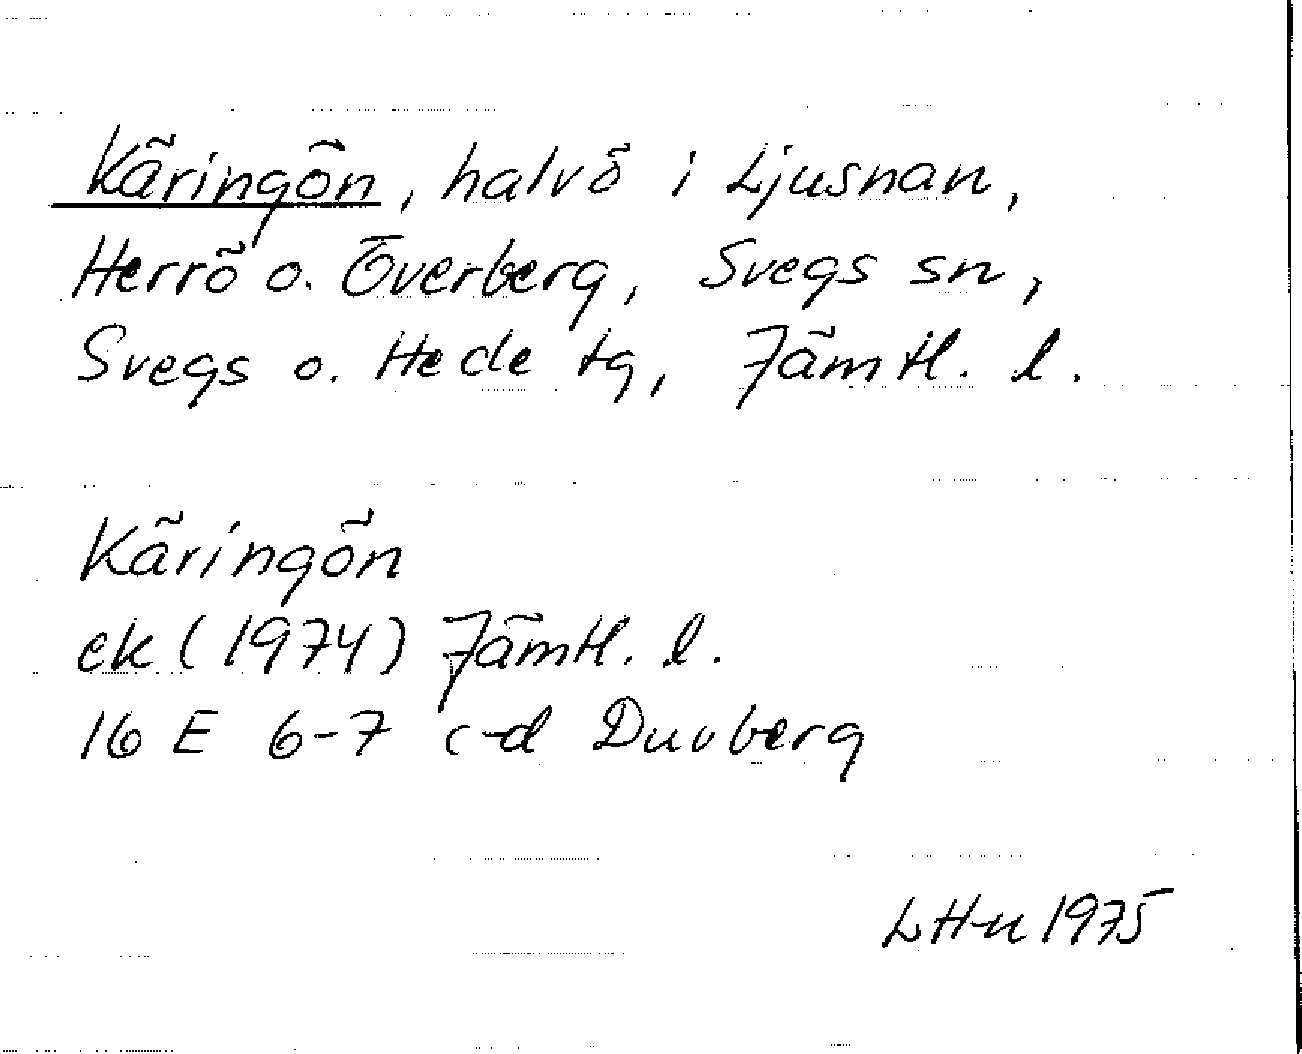 Käringön, halvö i Ljusnan,
Herrö o. Överberg, Svegs sn,
Svegs o. Hede tg, Jämtl. l.
Käringön
ek (1974) Jämtl. l.
16 E 6-7 c-d Duvberg
LH-n 1975